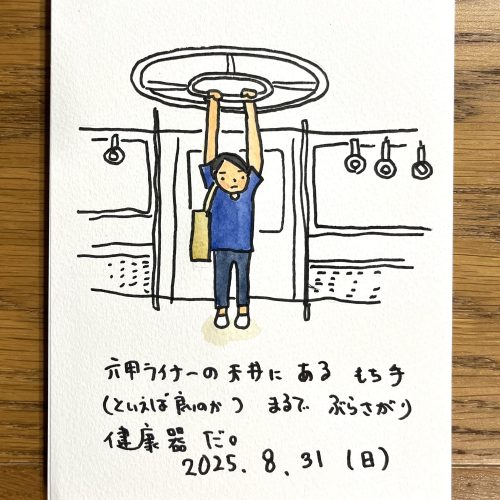 六甲ライナーの天井に ある もち手
(といえば良いのか) まるで ぶらさがり
健康器 だ。
2025. 8. 31 (日)